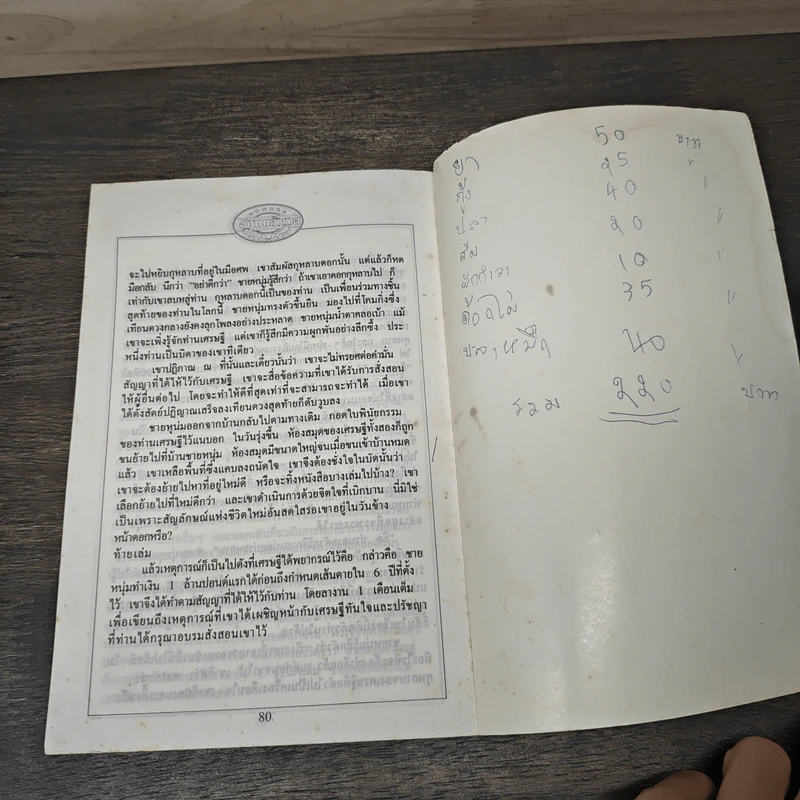 จะไปหยิบกุหลาบที่อยู่ในมือศพ เขาสัมผัสกุหลาบดอกนั้น แต่แล้วก็หด
มือกลับ นึกว่า “อย่าดีกว่า” ชายหนุ่มรู้สึกว่า ถ้าเขาเอาดอกกุหลาบไป ก็
เท่ากับเขาลบหลู่ท่าน กุหลาบดอกนี้เป็นของท่าน เป็นเพื่อนร่วมทางชิ้น
สุดท้ายของท่านในโลกนี้ ชายหนุ่มทรงตัวขึ้นยืน มองไปที่โคมกิ่งซึ่ง
เทียนดวงกลางยังคงลุกโพลงอย่างประหลาด ชายหนุ่มน้ำตาคลอเบ้า แม้
เขาจะเพิ่งรู้จักท่านเศรษฐี แต่เขาก็รู้สึกมีความผูกพันอย่างลึกซึ้ง ประ
หนึ่งท่านเป็นบิดาของเขาทีเดียว
เขาปฏิภาณ ณ ที่นั้นและเดี๋ยวนั้นว่า เขาจะไม่ทรยศต่อคำมั่น
สัญญาที่ได้ให้ไว้กับเศรษฐี เขาจะสื่อข้อความที่เขาได้รับการสั่งสอน
ให้ผู้อื่นต่อไป โดยจะทำให้ดีที่สุดเท่าที่จะสามารถจะทำได้ เมื่อเขา
ได้ตั้งสัตย์ปฏิญาณเสร็จลงเทียนดวงสุดท้ายก็ดับวูบลง
ชายหนุ่มออกจากบ้านกลับไปตามทางเดิม กอดใบพินัยกรรม
ของท่านเศรษฐีไว้แนบอก ในวันรุ่งขึ้น ห้องสมุดของเศรษฐีทั้งสองก็ถูก
ขนย้ายไปที่บ้านชายหนุ่ม ห้องสมุดมีขนาดใหญ่จนเมื่อขนเข้าบ้านหมด
แล้ว เขาเหลือพื้นที่ซึ่งแคบลงถนัดใจ เขาจึงต้องชั่งใจในบัดนั้นว่า
เขาจะต้องย้ายไปหาที่อยู่ใหม่ดี หรือจะทิ้งหนังสือบางเล่มไปบ้าง? เขา
เลือกย้ายไปที่ใหม่ดีกว่า และเขาดำเนินการด้วยจิตใจที่เบิกบาน นี่มิใช่
เป็นเพราะสัญลักษณ์แห่งชีวิตใหม่อันสดใสรอเขาอยู่ในวันข้าง
หน้าดอกหรือ?
ท้ายเล่ม
แล้วเหตุการณ์ก็เป็นไปดังที่เศรษฐีได้พยากรณ์ไว้คือ กล่าวคือ ชาย
หนุ่มทำเงิน 1 ล้านปอนด์แรกได้ก่อนถึงกำหนดเส้นตายใน 6 ปีที่ตั้ง
ไว้ เขาจึงได้ทำตามสัญญาที่ได้ให้ไว้กับท่าน โดยลางาน 1 เดือนเต็ม
เพื่อเขียนถึงเหตุการณ์ที่เขาได้เผชิญหน้ากับเศรษฐีทันใจและปรัชญา
ที่ท่านได้กรุณาอบรมสั่งสอนเขาไว้
80
ยา 50 บาท
กุ้ง 25 "
ปลา 40 "
ส้ม 20 "
10 "
ดอกไม้ 35 "
ปลาหมึก 40 "
รวม 220 บาท